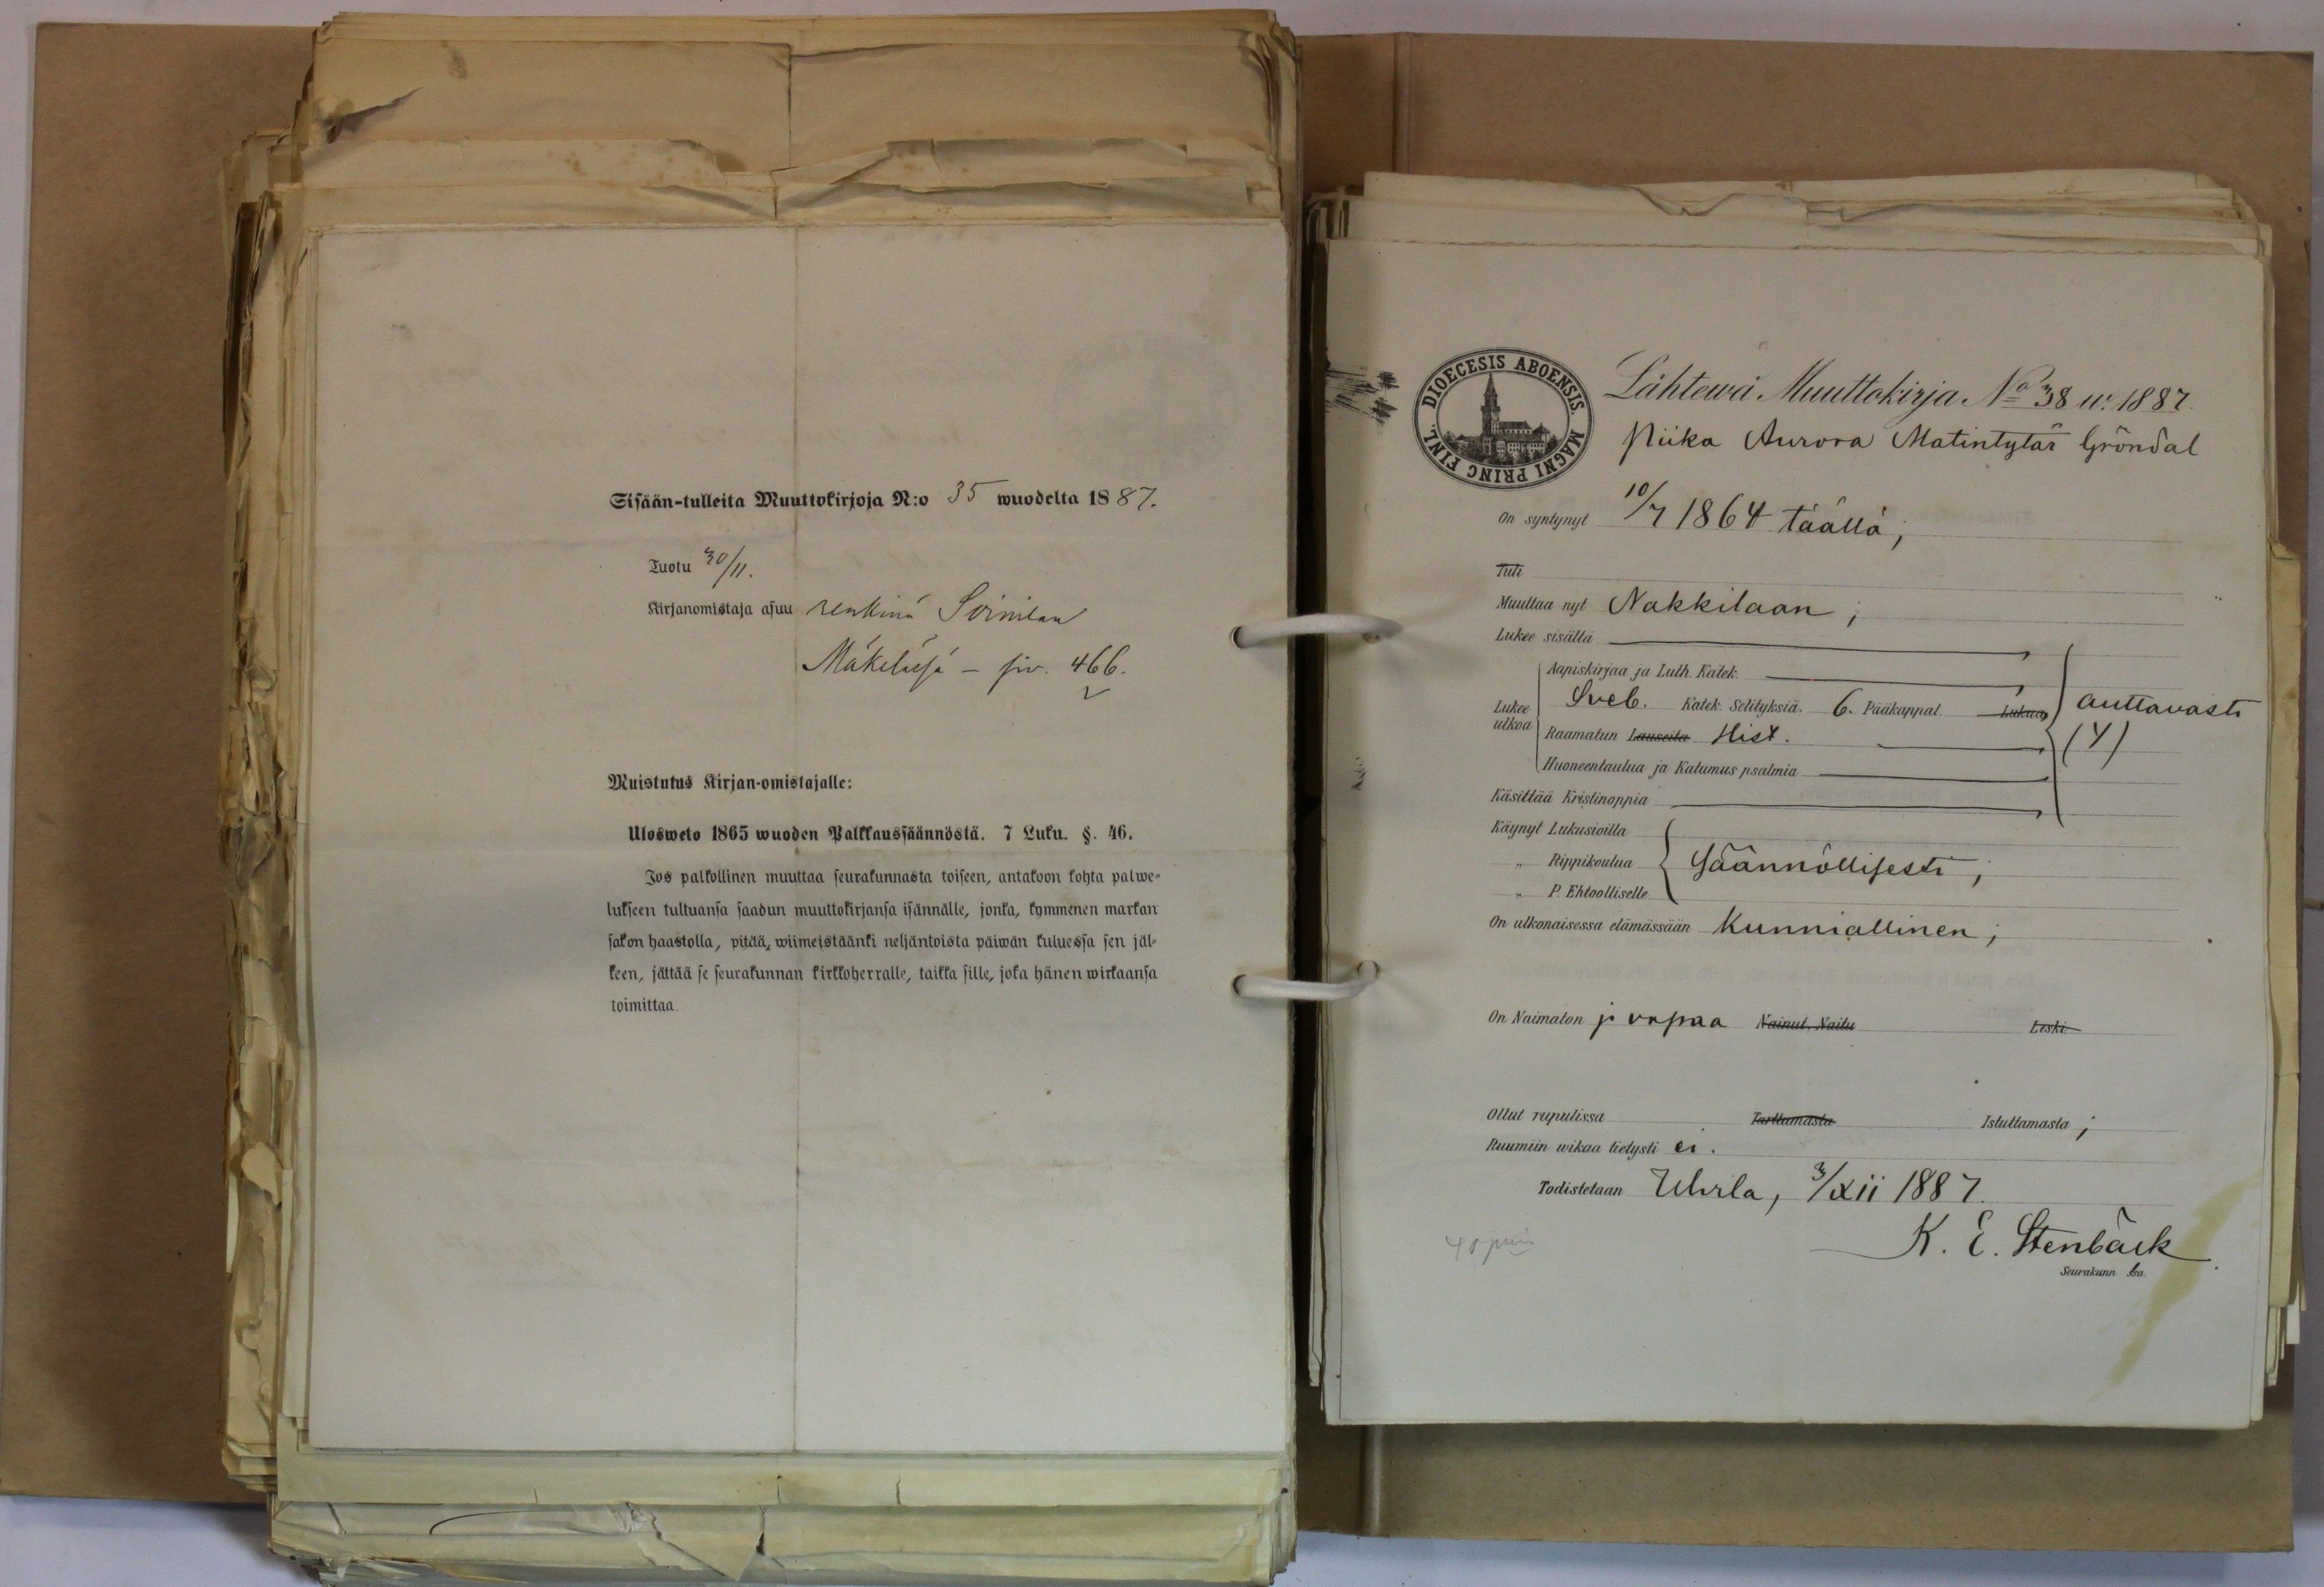 Sisään-tulleita Muuttokirjoja N:o 35 wuodelta 1887.
Tuotu 30/11.
Kirjanomistaja asuu renkinä Soinilan
Mäkelässä – siv. 466.
Muistutus Kirjan-omistajalle:
Ulosweto 1865 wuoden Palkkaussäännöstä. 7 Luku. §. 46.
Jos palkollinen muuttaa seurakunnasta toiseen, antakoon kohta palwe-
lukseen tultuansa saadun muuttokirjansa isännälle, jonka, kymmenen markan
sakon haastolla, pitää, wiimeistäänki neljäntoista päiwän kuluessa sen jäl-
keen, jättää se seurakunnan kirkkoherralle, taikka sille, joka hänen wirkaansa
toimittaa.
DIOECESIS ABOENSIS. MAGNI PRINC FINL.
Lähtewä Muuttokirja No 38 w. 1887.
Piika Aurora Matintytär Gröndal
On syntynyt 10/7 1864 täällä;
Tuli
Muuttaa nyt Nakkilaan;
Lukee sisältä
Aapiskirjaa ja Luth. Katek.
Lukee ulkoa Sveb. Katek. Selityksiä. 6. Pääkappal. Lukua auttavasti
Raamatun Lauseita Hist. (4)
Huoneentaulua ja Katumus psalmia
Käsittää Kristinoppia
Käynyt Lukusioilla
„ Rippikoulua säännöllisesti;
„ P. Ehtoolliselle
On ulkonaisessa elämässään Kunniallinen;
On Naimaton ja vapaa Nainut. Naitu Leski.
Ollut rupulissa Tarttumasta Istuttamasta;
Ruumiin wikaa tietysti ei.
Todistetaan Uhrla, 3/XII 1887.
K. E. Stenbäck
Seurakunn